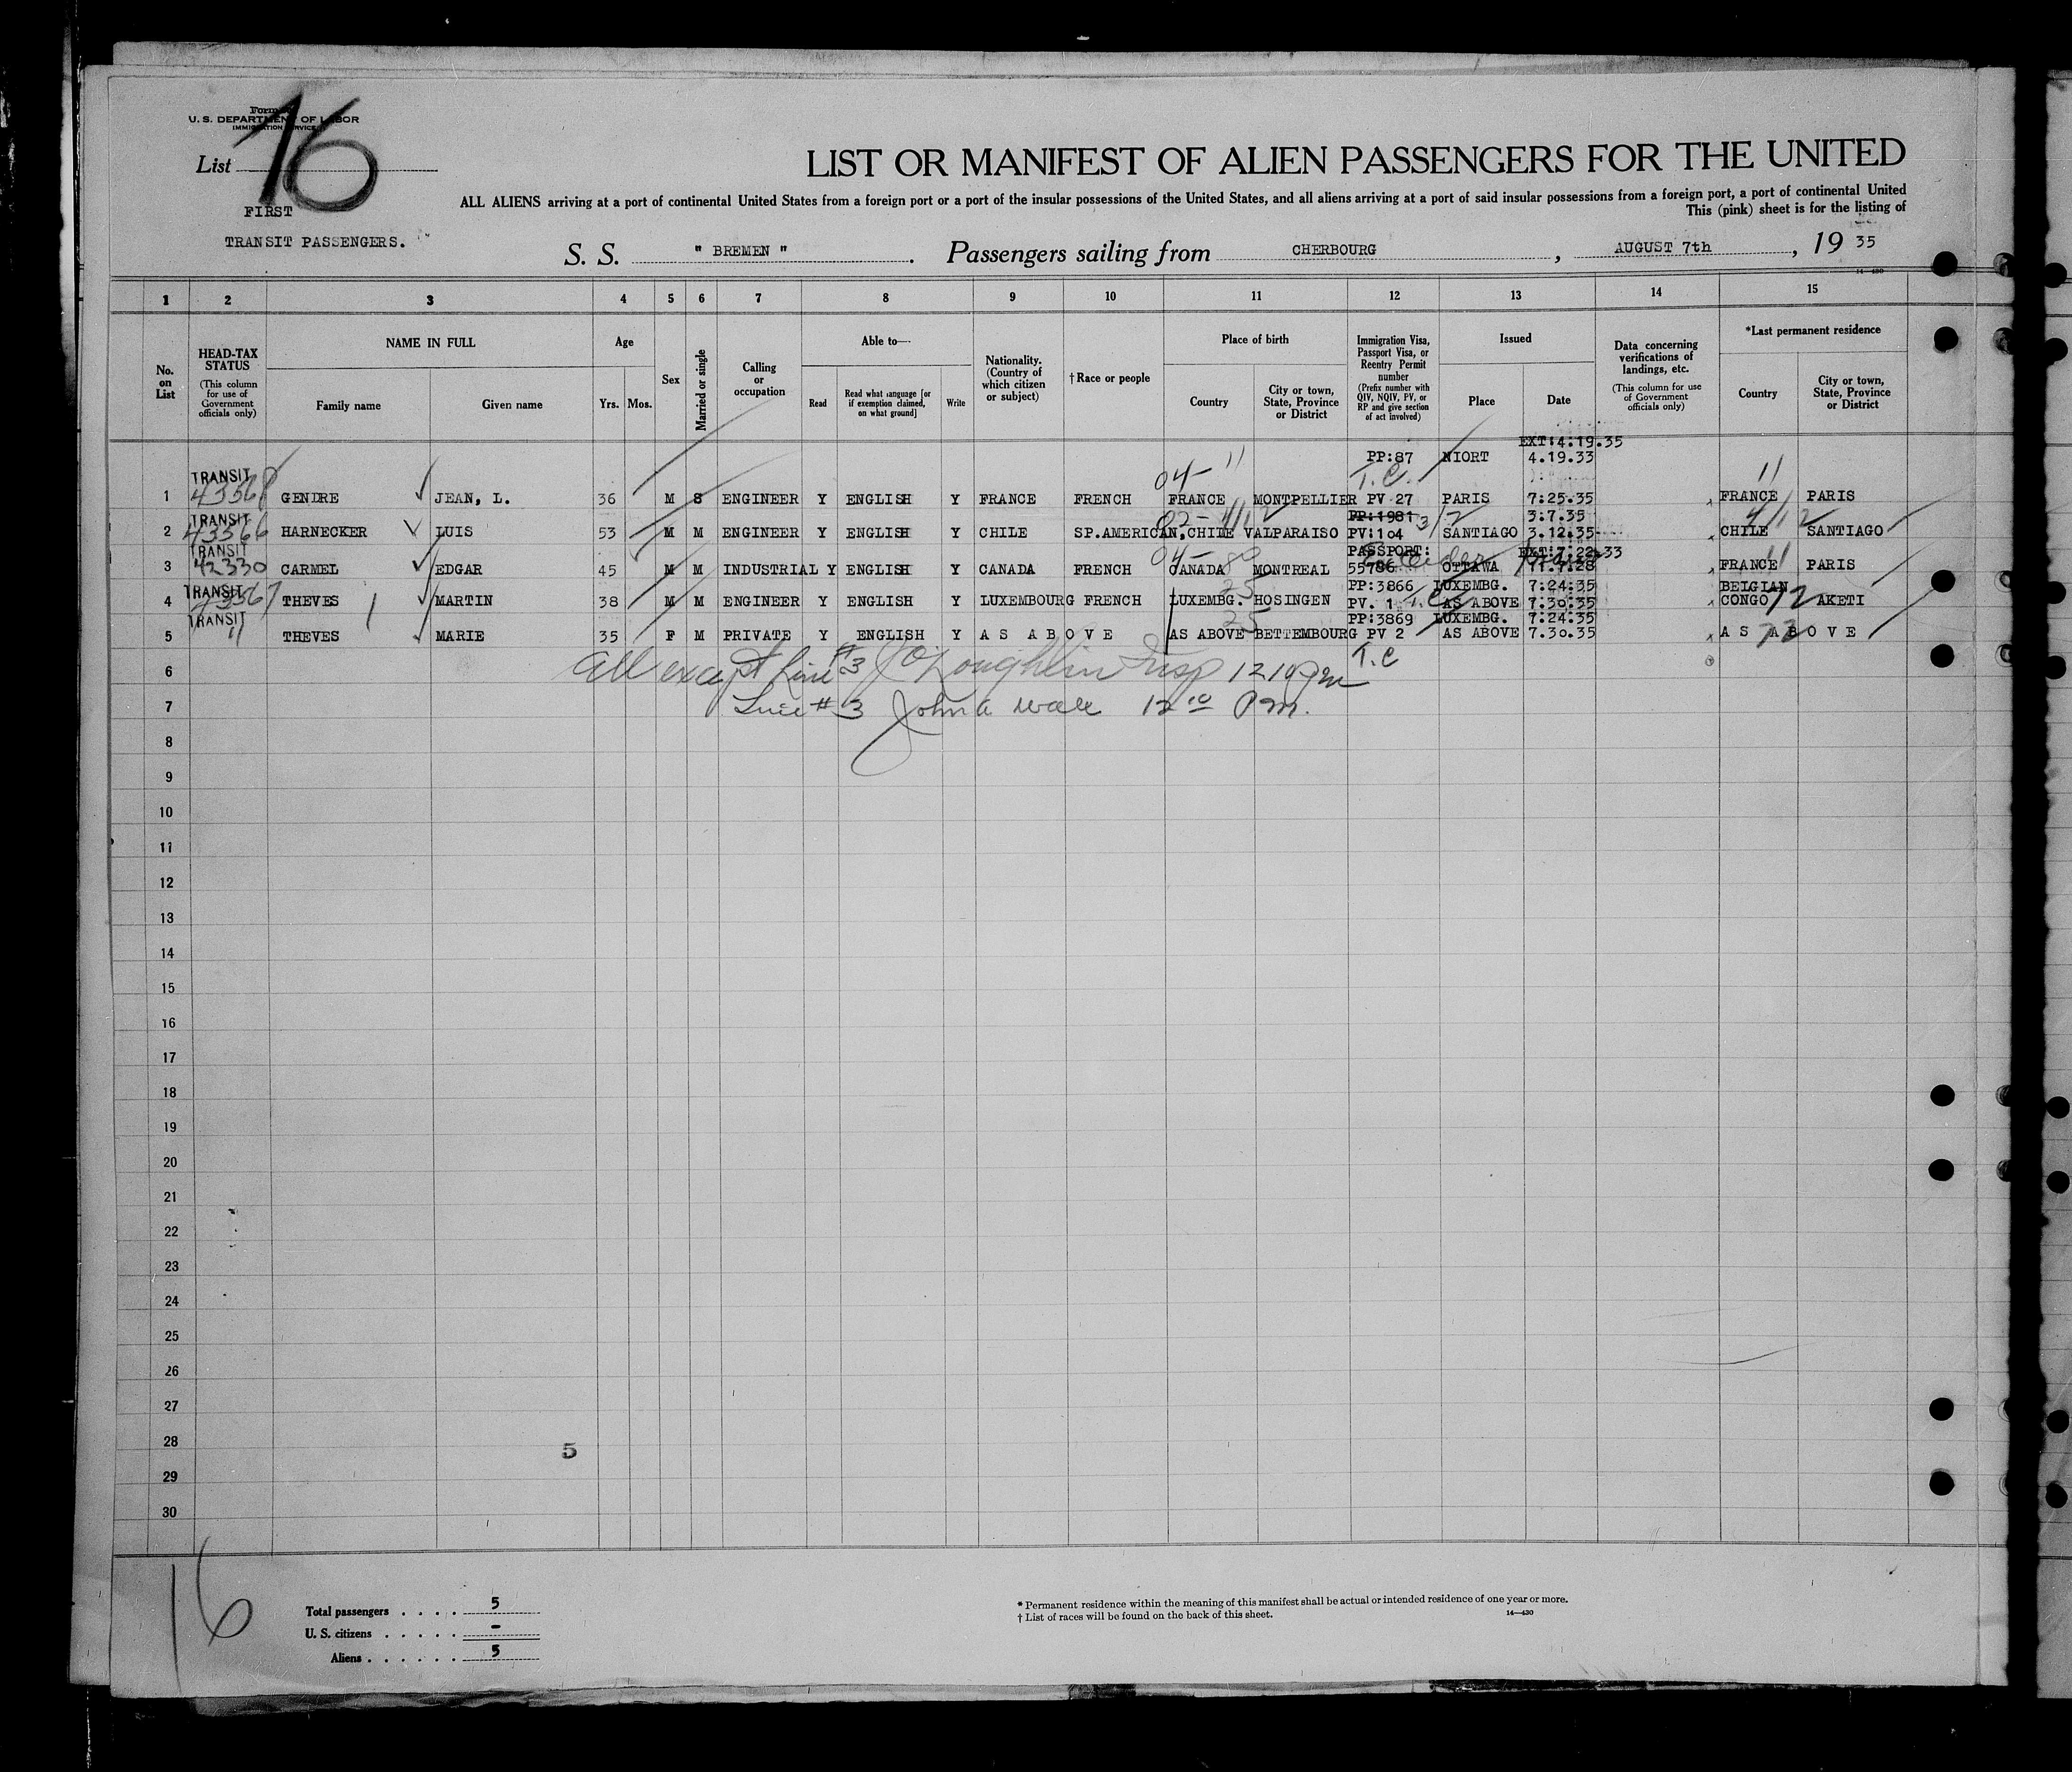 Form
U. S. DEPARTMENT OF LABOR
IMMIGRATION SERVICE
List 16
FIRST
TRANSIT PASSENGERS.
LIST OR MANIFEST OF ALIEN PASSENGERS FOR THE UNITED
ALL ALIENS arriving at a port of continental United States from a foreign port or a port of the insular possessions of the United States, and all aliens arriving at a port of said insular possessions from a foreign port, a port of continental United
This (pink) sheet is for the listing of
S. S. " BREMEN ". Passengers sailing from CHERBOURG, AUGUST 7th, 19 35
14-430
1 2 3 4 5 6 7 8 9 10 11 12 13 14 15
No. on List
HEAD-TAX STATUS (This column for use of Government officials only)
NAME IN FULL Family name Given name
Age Yrs. Mos.
Sex
Married or single
Calling or occupation
Able to— Read Read what language [or if exemption claimed, on what ground] Write
Nationality. (Country of which citizen or subject)
†Race or people
Place of birth Country City or town, State, Province or District
Immigration Visa, Passport Visa, or Reentry Permit number (Prefix number with QIV, NQIV, PV, or RP and give section of act involved)
Issued Place Date
Data concerning verifications of landings, etc. (This column for use of Government officials only)
*Last permanent residence Country City or town, State, Province or District
EXT:4:19.35
PP:87 NIORT 4.19.33
TRANSIT 04- 11 T.C. 11
1 43568 GENDRE JEAN, L. 36 M S ENGINEER Y ENGLISH Y FRANCE FRENCH FRANCE MONTPELLIER PV 27 PARIS 7:25.35 FRANCE PARIS
TRANSIT 02- 4/12 PP:1981 3/2 3:7.35 4/12
2 43566 HARNECKER LUIS 53 M M ENGINEER Y ENGLISH Y CHILE SP.AMERICAN, CHILE VALPARAISO PV:104 SANTIAGO 3.12.35 CHILE SANTIAGO
TRANSIT 04- 80 PASSPORT: EXT:7:22.33 11
3 42330 CARMEL EDGAR 45 M M INDUSTRIAL Y ENGLISH Y CANADA FRENCH CANADA MONTREAL 55786 OTTAWA 11.7:28 FRANCE PARIS
TRANSIT 25 PP:3866 LUXEMBG. 7:24:35 BELGIAN
4 43567 THEVES MARTIN 38 M M ENGINEER Y ENGLISH Y LUXEMBOURG FRENCH LUXEMBG. HOSINGEN PV. 1 T.C. AS ABOVE 7:30:35 CONGO 72 AKETI
TRANSIT 25 PP:3869 LUXEMBG. 7:24:35
5 " THEVES MARIE 35 F M PRIVATE Y ENGLISH Y AS ABOVE AS ABOVE BETTEMBOURG PV 2 AS ABOVE 7.30.35 AS ABOVE 72
6 All except Line #3 J O'Loughlin Insp 1210 pm T.C
7 Line #3 John A Wall 12 10 Pm.
8
9
10
11
12
13
14
15
16
17
18
19
20
21
22
23
24
25
26
27
28 5
29
30
16
Total passengers . . . . 5
U. S. citizens . . . . . -
Aliens . . . . . . 5
* Permanent residence within the meaning of this manifest shall be actual or intended residence of one year or more.
† List of races will be found on the back of this sheet. 14—430